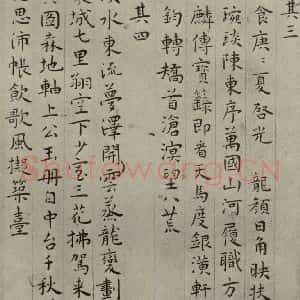 其三
食庚夏啓光 龍顏日角映扶
琬琰陳東序萬國山河履職方
麟傳寶籙即看天馬度銀潢軒
鈞轉矯首滄溟望八荒
其四
水東流夢澤開雲蒸龍變劃
城七里翔空下少室三花拂駕來
森地軸上公玉册自中台千秋
思沛帳飲歌風擬築臺
Shufawang.CN